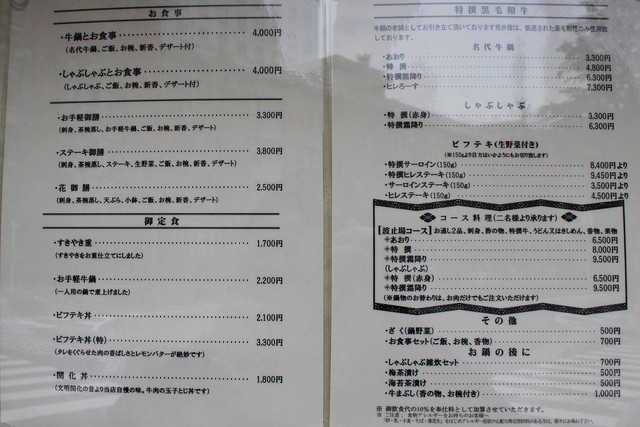 お食事
・牛鍋とお食事 4,000円
(名代牛鍋、ご飯、お椀、新香、デザート付)
・しゃぶしゃぶとお食事 4,000円
(しゃぶしゃぶ、ご飯、お椀、新香、デザート付)
・お手軽御膳 3,300円
(刺身、茶椀蒸し、お手軽牛鍋、ご飯、お椀、新香、デザート)
・ステーキ御膳 3,800円
(刺身、茶椀蒸し、ステーキ、生野菜、ご飯、お椀、新香、デザート)
・花御膳 2,500円
(刺身、茶椀蒸し、天ぷら、小鉢、ご飯、お椀、新香、デザート)
御定食
・すきやき重 1,700円
(すきやきをお重仕立てにしました)
・お手軽牛鍋 2,200円
(一人用の鍋で煮上げました)
・ビフテキ丼 2,100円
・ビフテキ丼(特) 3,300円
(タレをくぐらせた肉の香ばしさとレモンバターが絶妙です)
・開化丼 1,800円
(文明開化の昔より当店自慢の味。牛肉の玉子とじ丼です)
特撰黒毛和牛
牛鍋の老舗としてお引き立て頂いております荒井屋は、厳選された黒毛和牛のみ使用致しております。
名代牛鍋
・あおり 3,300円
・特撰 4,800円
・特撰霜降り 6,300円
・ヒレろーす 7,300円
しゃぶしゃぶ
・特撰(赤身) 3,300円
・特撰霜降り 6,300円
ビフテキ(生野菜付き)
(※150gより目方はいかようにもお切り致します)
・特撰サーロイン(150g) 8,400円より
・特撰ヒレステーキ(150g) 9,450円より
・サーロインステーキ(150g) 3,500円より
・ヒレステーキ(150g) 4,500円より
コース料理(二名様より承ります)
[波止場コース] お通し2品、刺身、酢の物、特撰牛、うどん又はきしめん、香物、果物
＊あおり 6,500円
＊特撰 8,000円
＊特撰霜降り 9,500円
(しゃぶしゃぶ)
＊特撰(赤身) 6,500円
＊特撰霜降り 9,500円
(※鍋物のお替わりは、お肉だけでもご注文いただけます)
その他
・ざく(鍋野菜) 500円
・お食事セット(ご飯、お椀、香物) 700円
お鍋の後に
・しゃぶしゃぶ雑炊セット 700円
・梅茶漬け 500円
・海苔茶漬け 500円
・牛まぶし(香の物、お椀付き) 1,000円
※ 御飲食代の10%を奉仕料として加算させていただきます。
※ ご注意: 食物アレルギーをお持ちのお客様へ